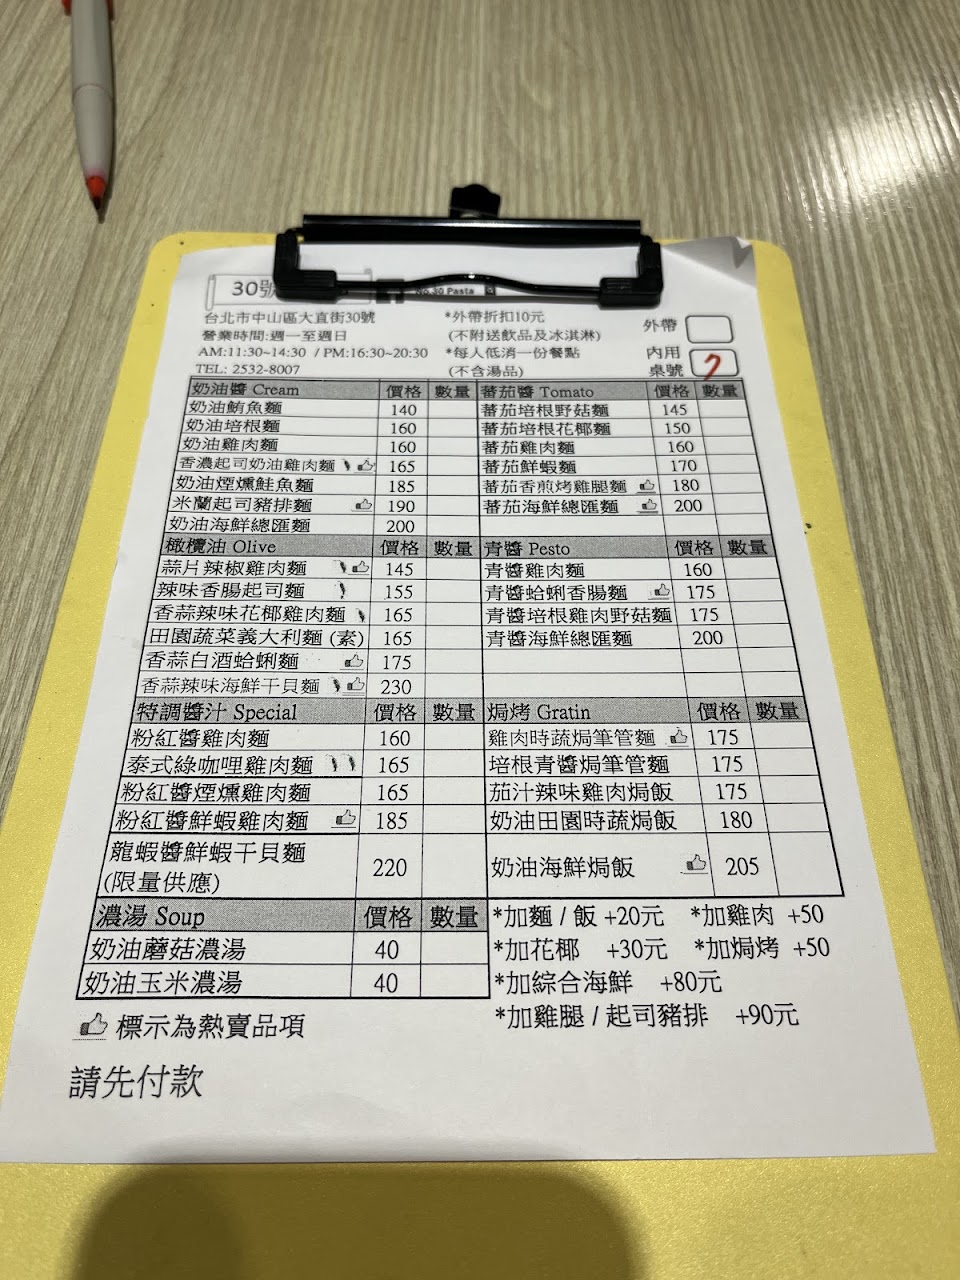 30號
No.30 Pasta
台北市中山區大直街30號
營業時間:週一至週日
AM:11:30~14:30 / PM:16:30~20:30
TEL: 2532-8007
*外帶折扣10元
(不附送飲品及冰淇淋)
*每人低消一份餐點
(不含湯品)
外帶
內用
桌號 7
奶油醬 Cream 價格 數量
奶油鮪魚麵 140
奶油培根麵 160
奶油雞肉麵 160
香濃起司奶油雞肉麵 165
奶油煙燻鮭魚麵 185
米蘭起司豬排麵 190
奶油海鮮總匯麵 200
蕃茄醬 Tomato 價格 數量
蕃茄培根野菇麵 145
蕃茄培根花椰麵 150
蕃茄雞肉麵 160
蕃茄鮮蝦麵 170
蕃茄香煎烤雞腿麵 180
蕃茄海鮮總匯麵 200
橄欖油 Olive 價格 數量
蒜片辣椒雞肉麵 145
辣味香腸起司麵 155
香蒜辣味花椰雞肉麵 165
田園蔬菜義大利麵 (素) 165
香蒜白酒蛤蜊麵 175
香蒜辣味海鮮干貝麵 230
青醬 Pesto 價格 數量
青醬雞肉麵 160
青醬蛤蜊香腸麵 175
青醬培根雞肉野菇麵 175
青醬海鮮總匯麵 200
特調醬汁 Special 價格 數量
粉紅醬雞肉麵 160
泰式綠咖哩雞肉麵 165
粉紅醬煙燻雞肉麵 165
粉紅醬鮮蝦雞肉麵 185
龍蝦醬鮮蝦干貝麵
(限量供應) 220
焗烤 Gratin 價格 數量
雞肉時蔬焗筆管麵 175
培根青醬焗筆管麵 175
茄汁辣味雞肉焗飯 175
奶油田園時蔬焗飯 180
奶油海鮮焗飯 205
濃湯 Soup 價格 數量
奶油蘑菇濃湯 40
奶油玉米濃湯 40
*加麵 / 飯 +20元 *加雞肉 +50
*加花椰 +30元 *加焗烤 +50
*加綜合海鮮 +80元
*加雞腿 / 起司豬排 +90元
標示為熱賣品項
請先付款